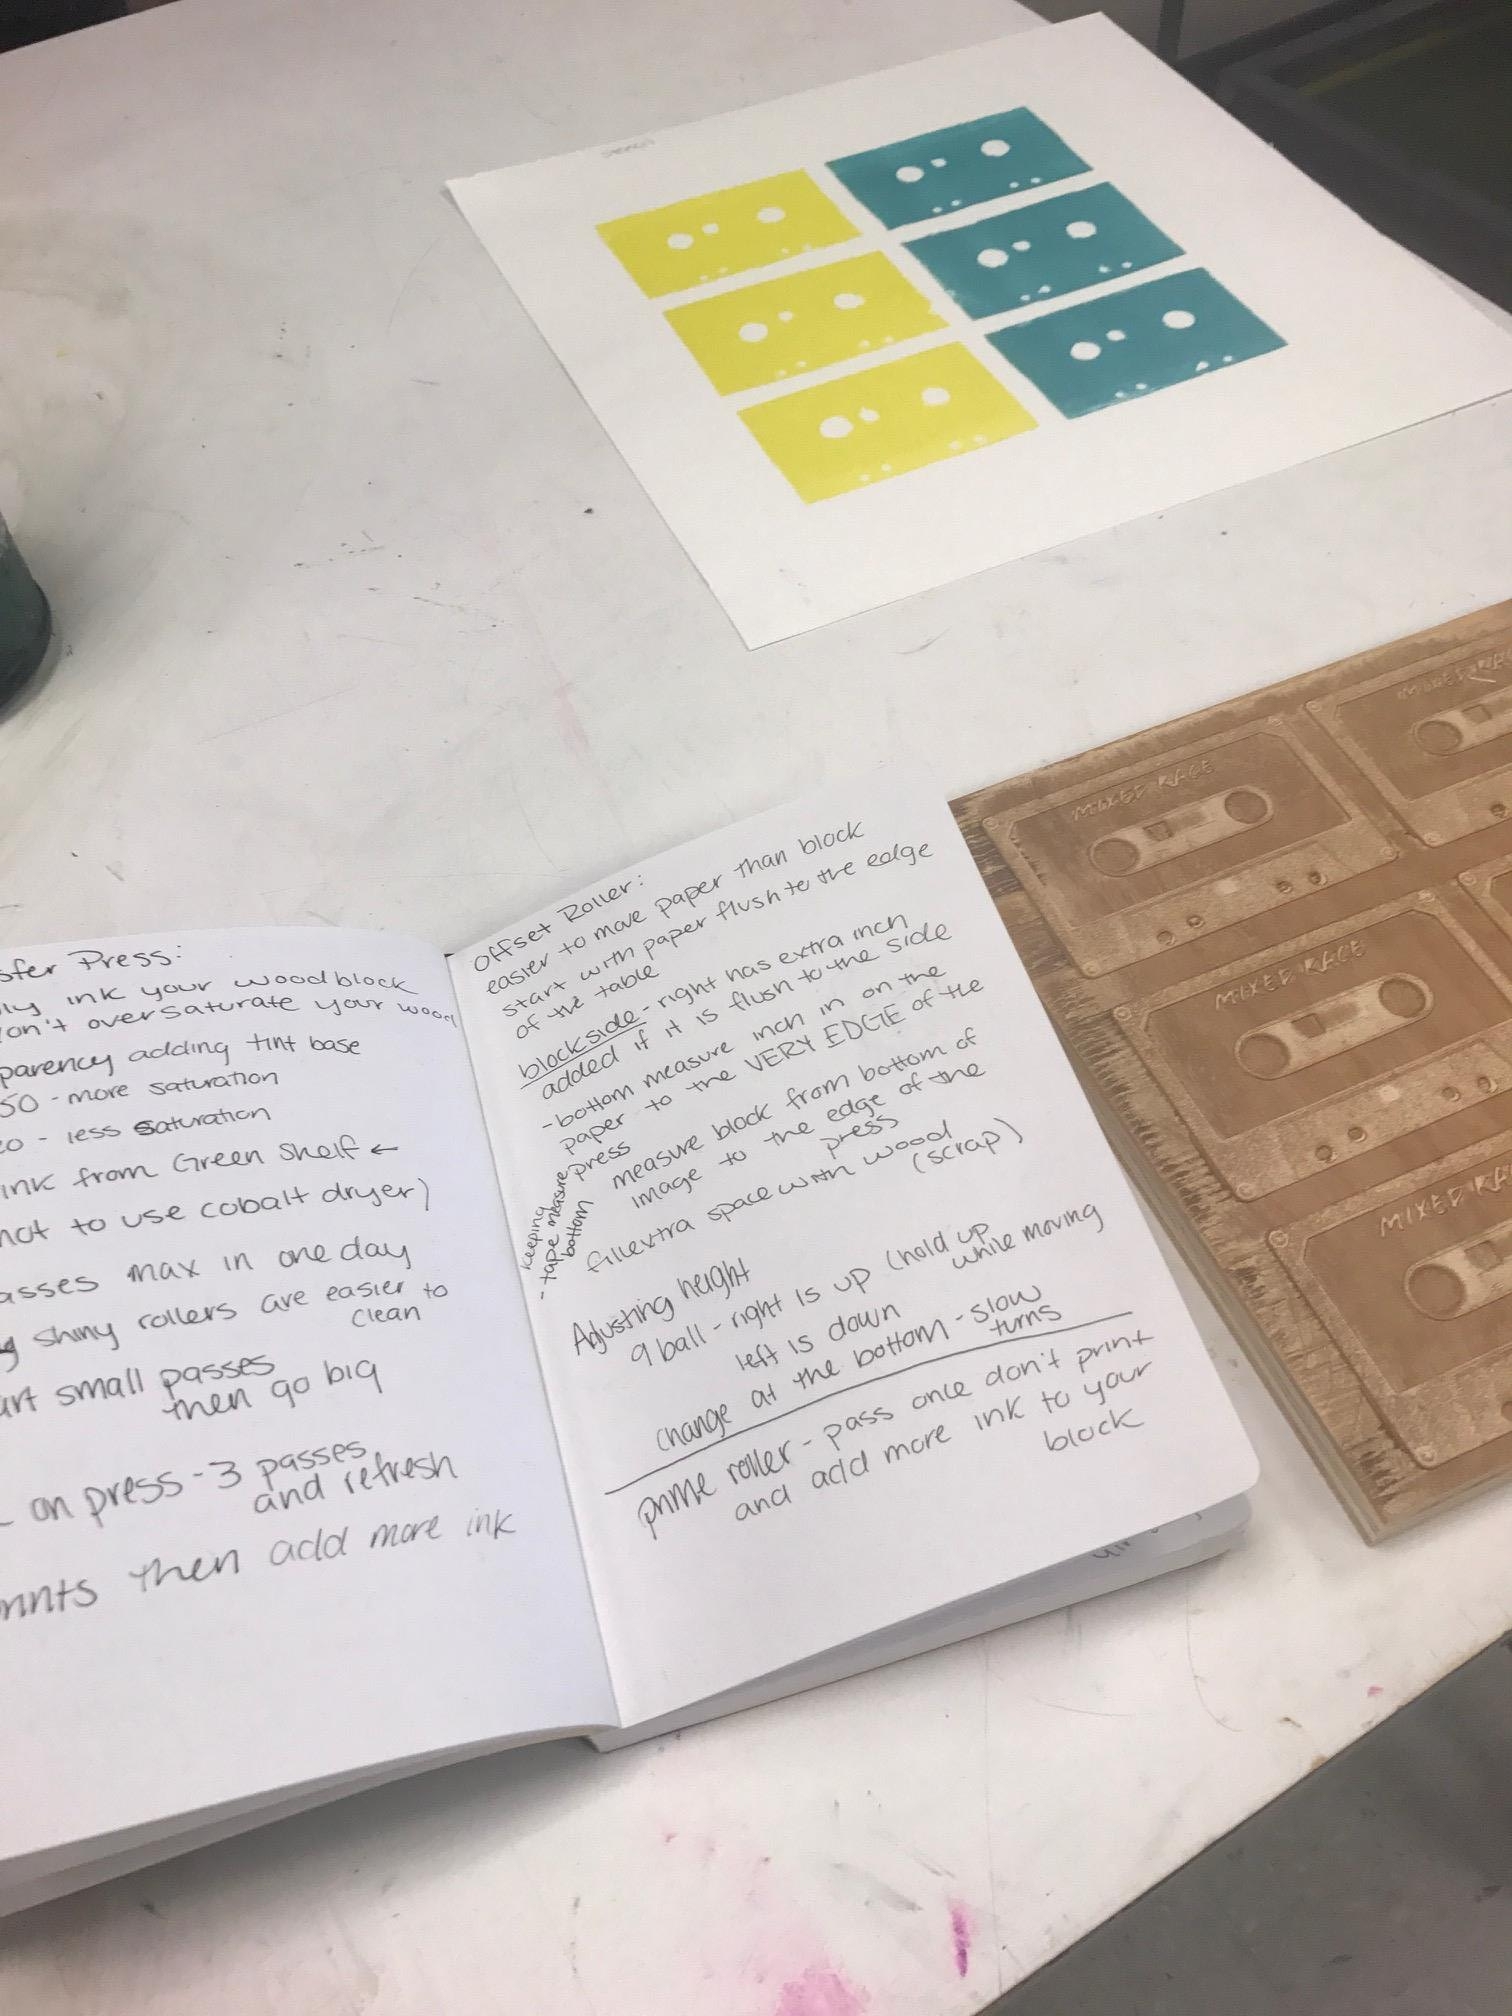 Press:
ink your woodblock
oversaturate your wood
adding tint base
50 - more saturation
- less saturation
ink from Green Shelf ←
not to use cobalt dryer)
max in one day
shiny rollers are easier to
clean
small passes
then go big
on press - 3 passes
and refresh
then add more ink
offset Roller:
easier to move paper than block
start with paper flush to the edge
of the table
blockside - right has extra inch
added if it is flush to the side
- bottom measure inch in on the
paper to the VERY EDGE of the
press
measure block from bottom of
image to the edge of the
press
- keeping
tape measure
bottom
fill extra space with wood
(scrap)
Adjusting height
9 ball - right is up (hold up
while moving
left is down
change at the bottom - slow
turns
prime roller - pass once don't print
and add more ink to your
block
MIXED RACE
MIXED
MIXED RACE
MIXED